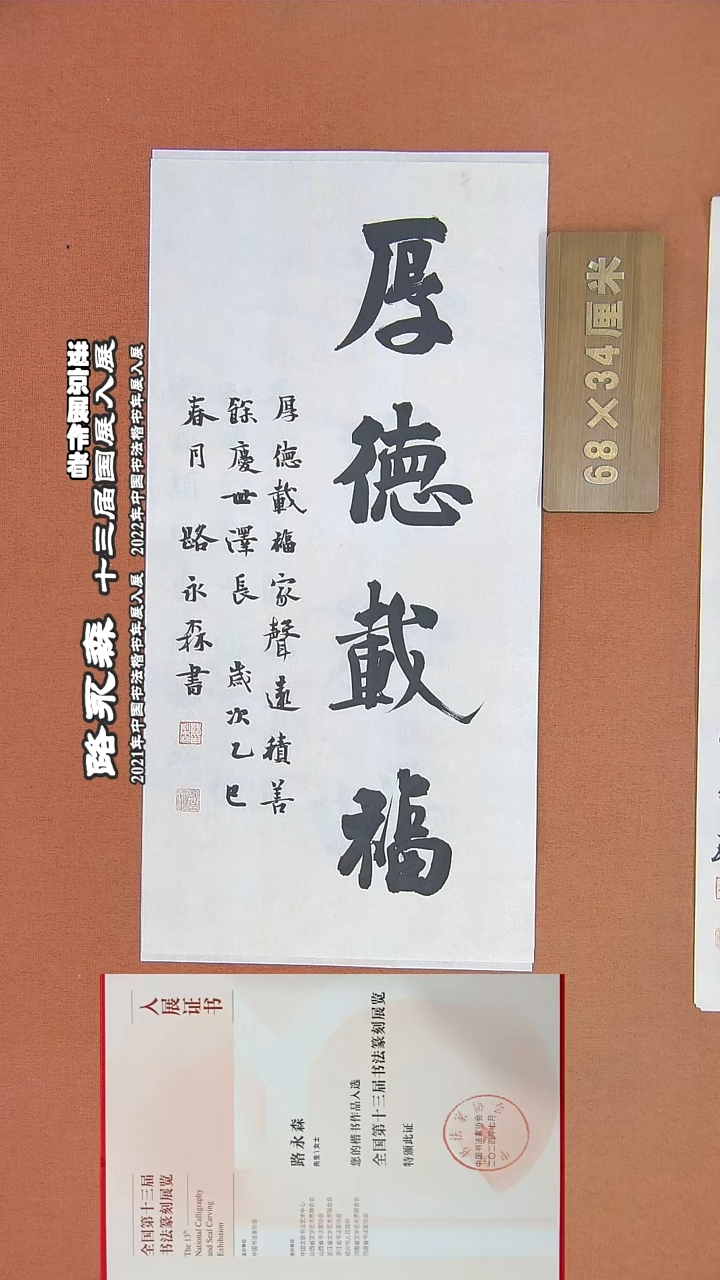 厚德載福
厚德載福家聲遠積善
餘慶世澤長 歲次乙巳
春月 路永森書
68×34厘米
路永森 十三届国展入展
2021年中国书法楷书年展入展 2022年中国书法楷书年展入展
入展证书
全国第十三届
书法篆刻展览
The 13th
National Calligraphy
and Seal Carving
Exhibition
主办单位
中国书法家协会
路永森
先生\女士
您的楷书作品入选
全国第十三届书法篆刻展览
特颁此证
中国书法家协会
二〇二四年七月